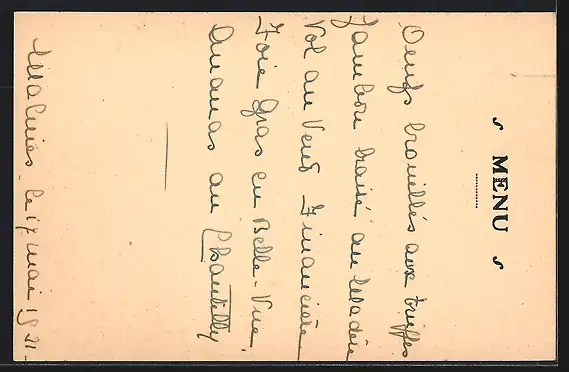 MENU
Oeufs brouillés aux truffes
Jambon braisé au Madère
Vol au Vent Financière
Foie Gras en Belle-Vue
Ananas au Chantilly
Malines le 17 mai 1921